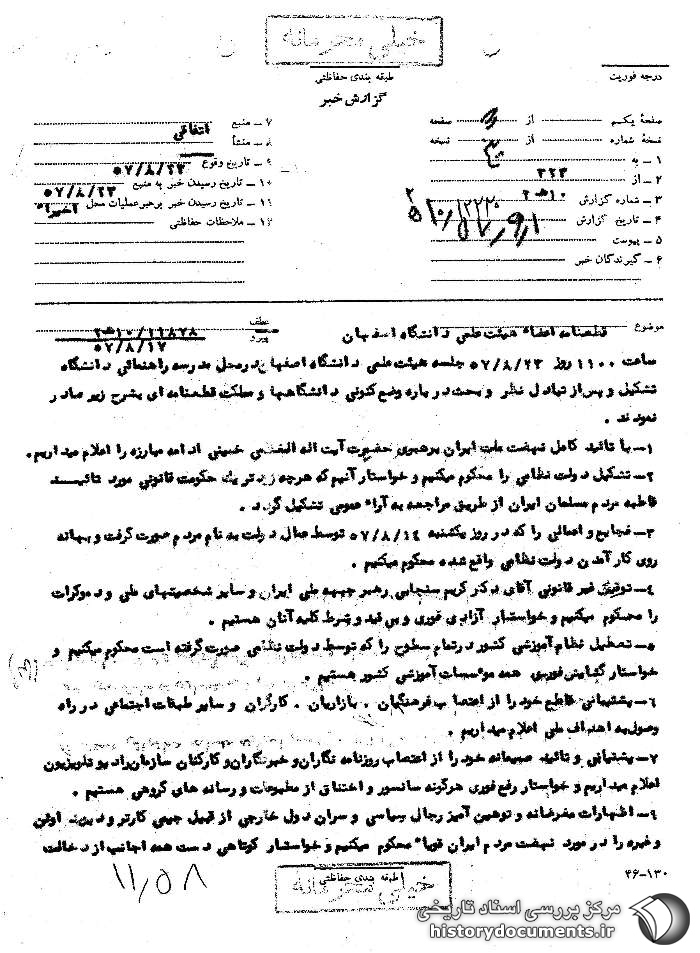 خیلی محرمانه
طبقه بندی حفاظتی
گزارش خبر
درجه فوریت
صفحه یکم از ۳ صفحه
نسخه شماره از نسخه
۱ ـ به
۲ ـ از ۳۲۳
۳ ـ شماره گزارش ۱۰هـ۲
۴ ـ تاریخ گزارش
۵ ـ پیوست
۶ ـ گیرندگان خبر
۷ ـ منبع
۸ ـ منشأ اتفاقی
۹ ـ تاریخ وقوع ۵۷/۸/۲۳
۱۰ ـ تاریخ رسیدن خبر به منبع ۵۷/۸/۲۳
۱۱ ـ تاریخ رسیدن خبر برهبر عملیات محل اخیراً
۱۲ ـ ملاحظات حفاظتی
موضوع قطعنامه اعضاء هیئت علمی دانشگاه اصفهان
عطف
پیرو
۵۷/۸/۱۷
ساعت ۱۱۰۰ روز ۵۷/۸/۲۳ جلسه هیئت علمی دانشگاه اصفهان در محل مدرسه راهنمائی دانشگاه
تشکیل و پس از تبادل نظر و بحث در باره وضع کنونی دانشگاهها و مملکت قطعنامه ای بشرح زیر صادر
نمودند .
۱ـ با تائید کامل نهضت ملت ایران برهبری حضرت آیت اله العظمی خمینی ادامه مبارزه را اعلام میداریم .
۲ـ تشکیل دولت نظامی را محکوم میکنیم و خواستار آنیم که هرچه زودتر یک حکومت قانونی مورد تائیــد
قاطبه مردم مسلمان ایران از طریق مراجعه به آراء عمومی تشکیل گردد .
۳ـ فجایع و اعمالی را که در روز یکشنبه ۵۷/۸/۱۴ توسط عمال دولت به نام مردم صورت گرفت و بهانه
روی کار آمدن دولت نظامی واقع شده محکوم میکنیم .
۴ـ توقیف غیر قانونی آقای دکتر کریم سنجابی رهبر جبهه ملی ایران و سایر شخصیتهای ملی و دموکرات
را محکوم میکنیم و خواستار آزادی فوری و بی قید و شرط کلیه آنان هستیم .
۵ـ تعطیل نظام آموزشی کشور در تمام سطوح را که توسط دولت نظامی صورت گرفته است محکوم میکنیم و
خواستار گشایش فوری همه موسسات آموزشی کشور هستیم .
۶ـ پشتیبانی قاطع خود را از اعتصاب فرهنگیان . بازاریان . کارگران و سایر طبقات اجتماعی در راه
وصول به اهداف ملی اعلام میداریم .
۷ـ پشتیبانی و تائید صمیمانه خود را از اعتصاب روزنامه نگاران و خبرنگاران و کارکنان سازمان رادیو تلویزیون
اعلام میداریم و خواستار رفع فوری هرگونه سانسور و اختناق از مطبوعات و رسانه های گروهی هستیم .
اظهارات مغرضانه و توهین آمیز رجال سیاسی و سران دول خارجی از قبیل جیمی کارتر و دیوید اوئن
و غیره را در مورد نهضت مردم ایران قویاً محکوم میکنیم و خواستار کوتاهی دست همه اجانب از دخالت
۱۱٫۵۸
طبقه بندی حفاظتی
خیلی محرمانه
۴۶-۱۳۰
مرکز بررسی اسناد تاریخی
historydocuments.ir